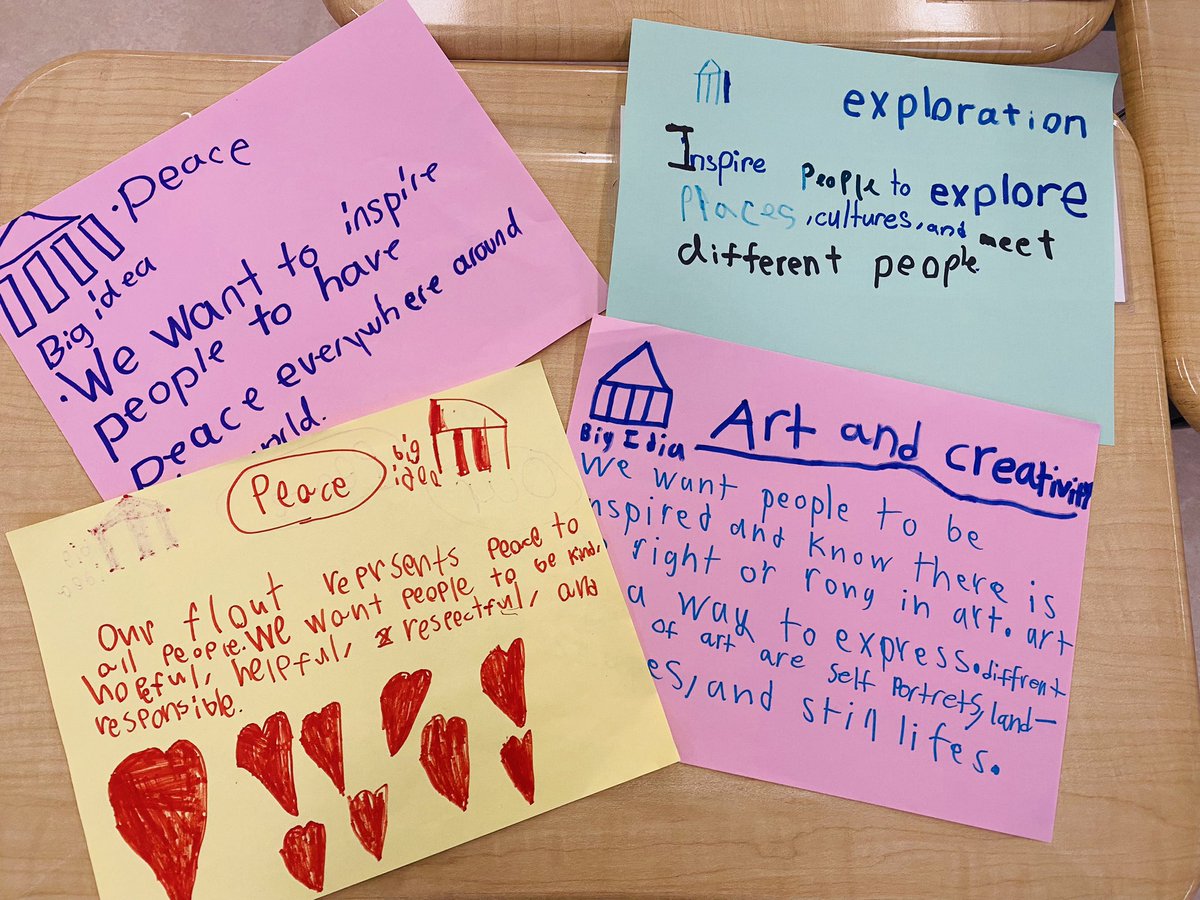 .peace
Big idea
.We want to inspire
people to have
peace everywhere around
exploration
Inspire people to explore
Places, cultures, and meet
different people
Peace
big
idea
Our flout reprsents peace to
all people. We want people to be kind,
hopeful, helpful, respectful, and
responsible.
Big Idia
Art and creativity
We want people to be
inspired and know there is
right or rong in art. art
a way to express. diffrent
of art are self portrets, land-
es, and still lifes.